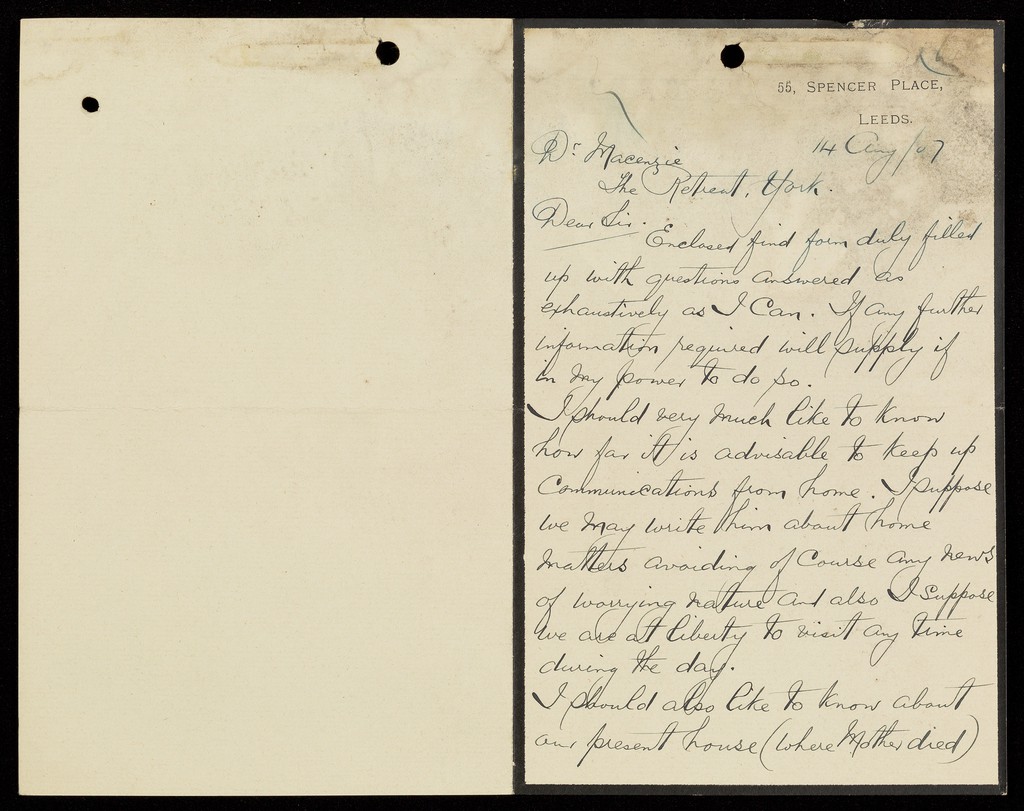 55, SPENCER PLACE,
LEEDS.
14 Aug/07
Dr. Macenzie
The Retreat, York.
Dear Sir.
Enclosed find form duly filled
up with questions answered as
exhaustively as I Can. If any further
information required will supply if
in my power to do so.
I should very much like to know
how far it is advisable to keep up
Communications from home. I suppose
we may write him about home
matters avoiding of Course any news
of worrying nature and also I suppose
we are at liberty to visit any time
during the day.
I should also like to know about
our present house (where Mother died)